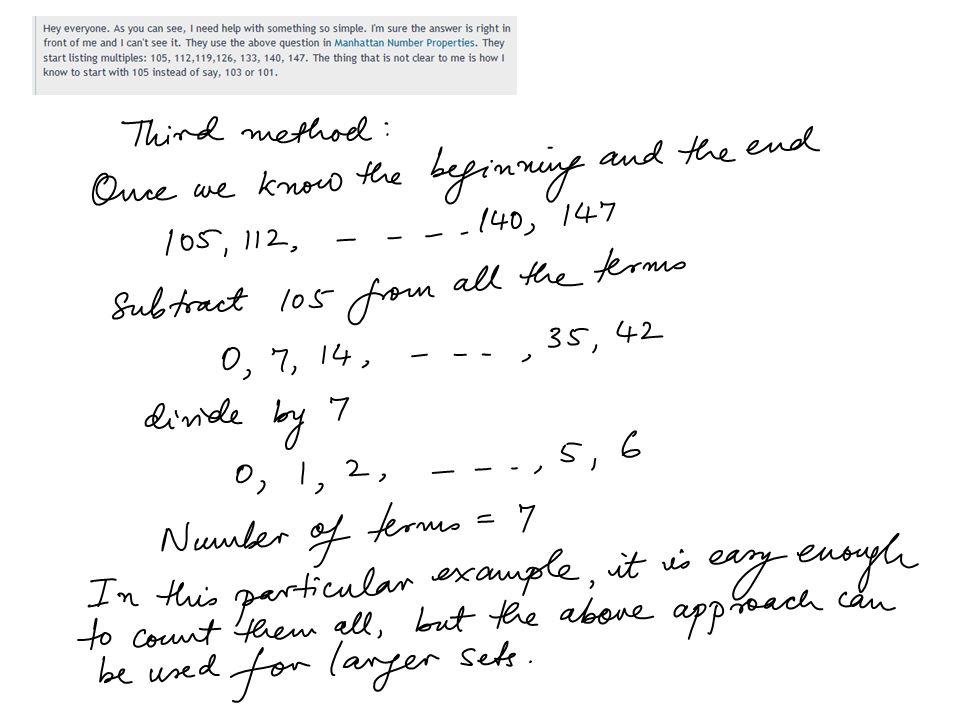 Hey everyone. As you can see, I need help with something so simple. I'm sure the answer is right in
front of me and I can't see it. They use the above question in Manhattan Number Properties. They
start listing multiples: 105, 112,119,126, 133, 140, 147. The thing that is not clear to me is how I
know to start with 105 instead of say, 103 or 101.
Third method :
Once we know the beginning and the end
105, 112, - - - - 140, 147
Subtract 105 from all the terms
0, 7, 14, - - - , 35, 42
divide by 7
0, 1, 2, - - - , 5, 6
Number of terms = 7
In this particular example, it is easy enough
to count them all, but the above approach can
be used for larger sets.